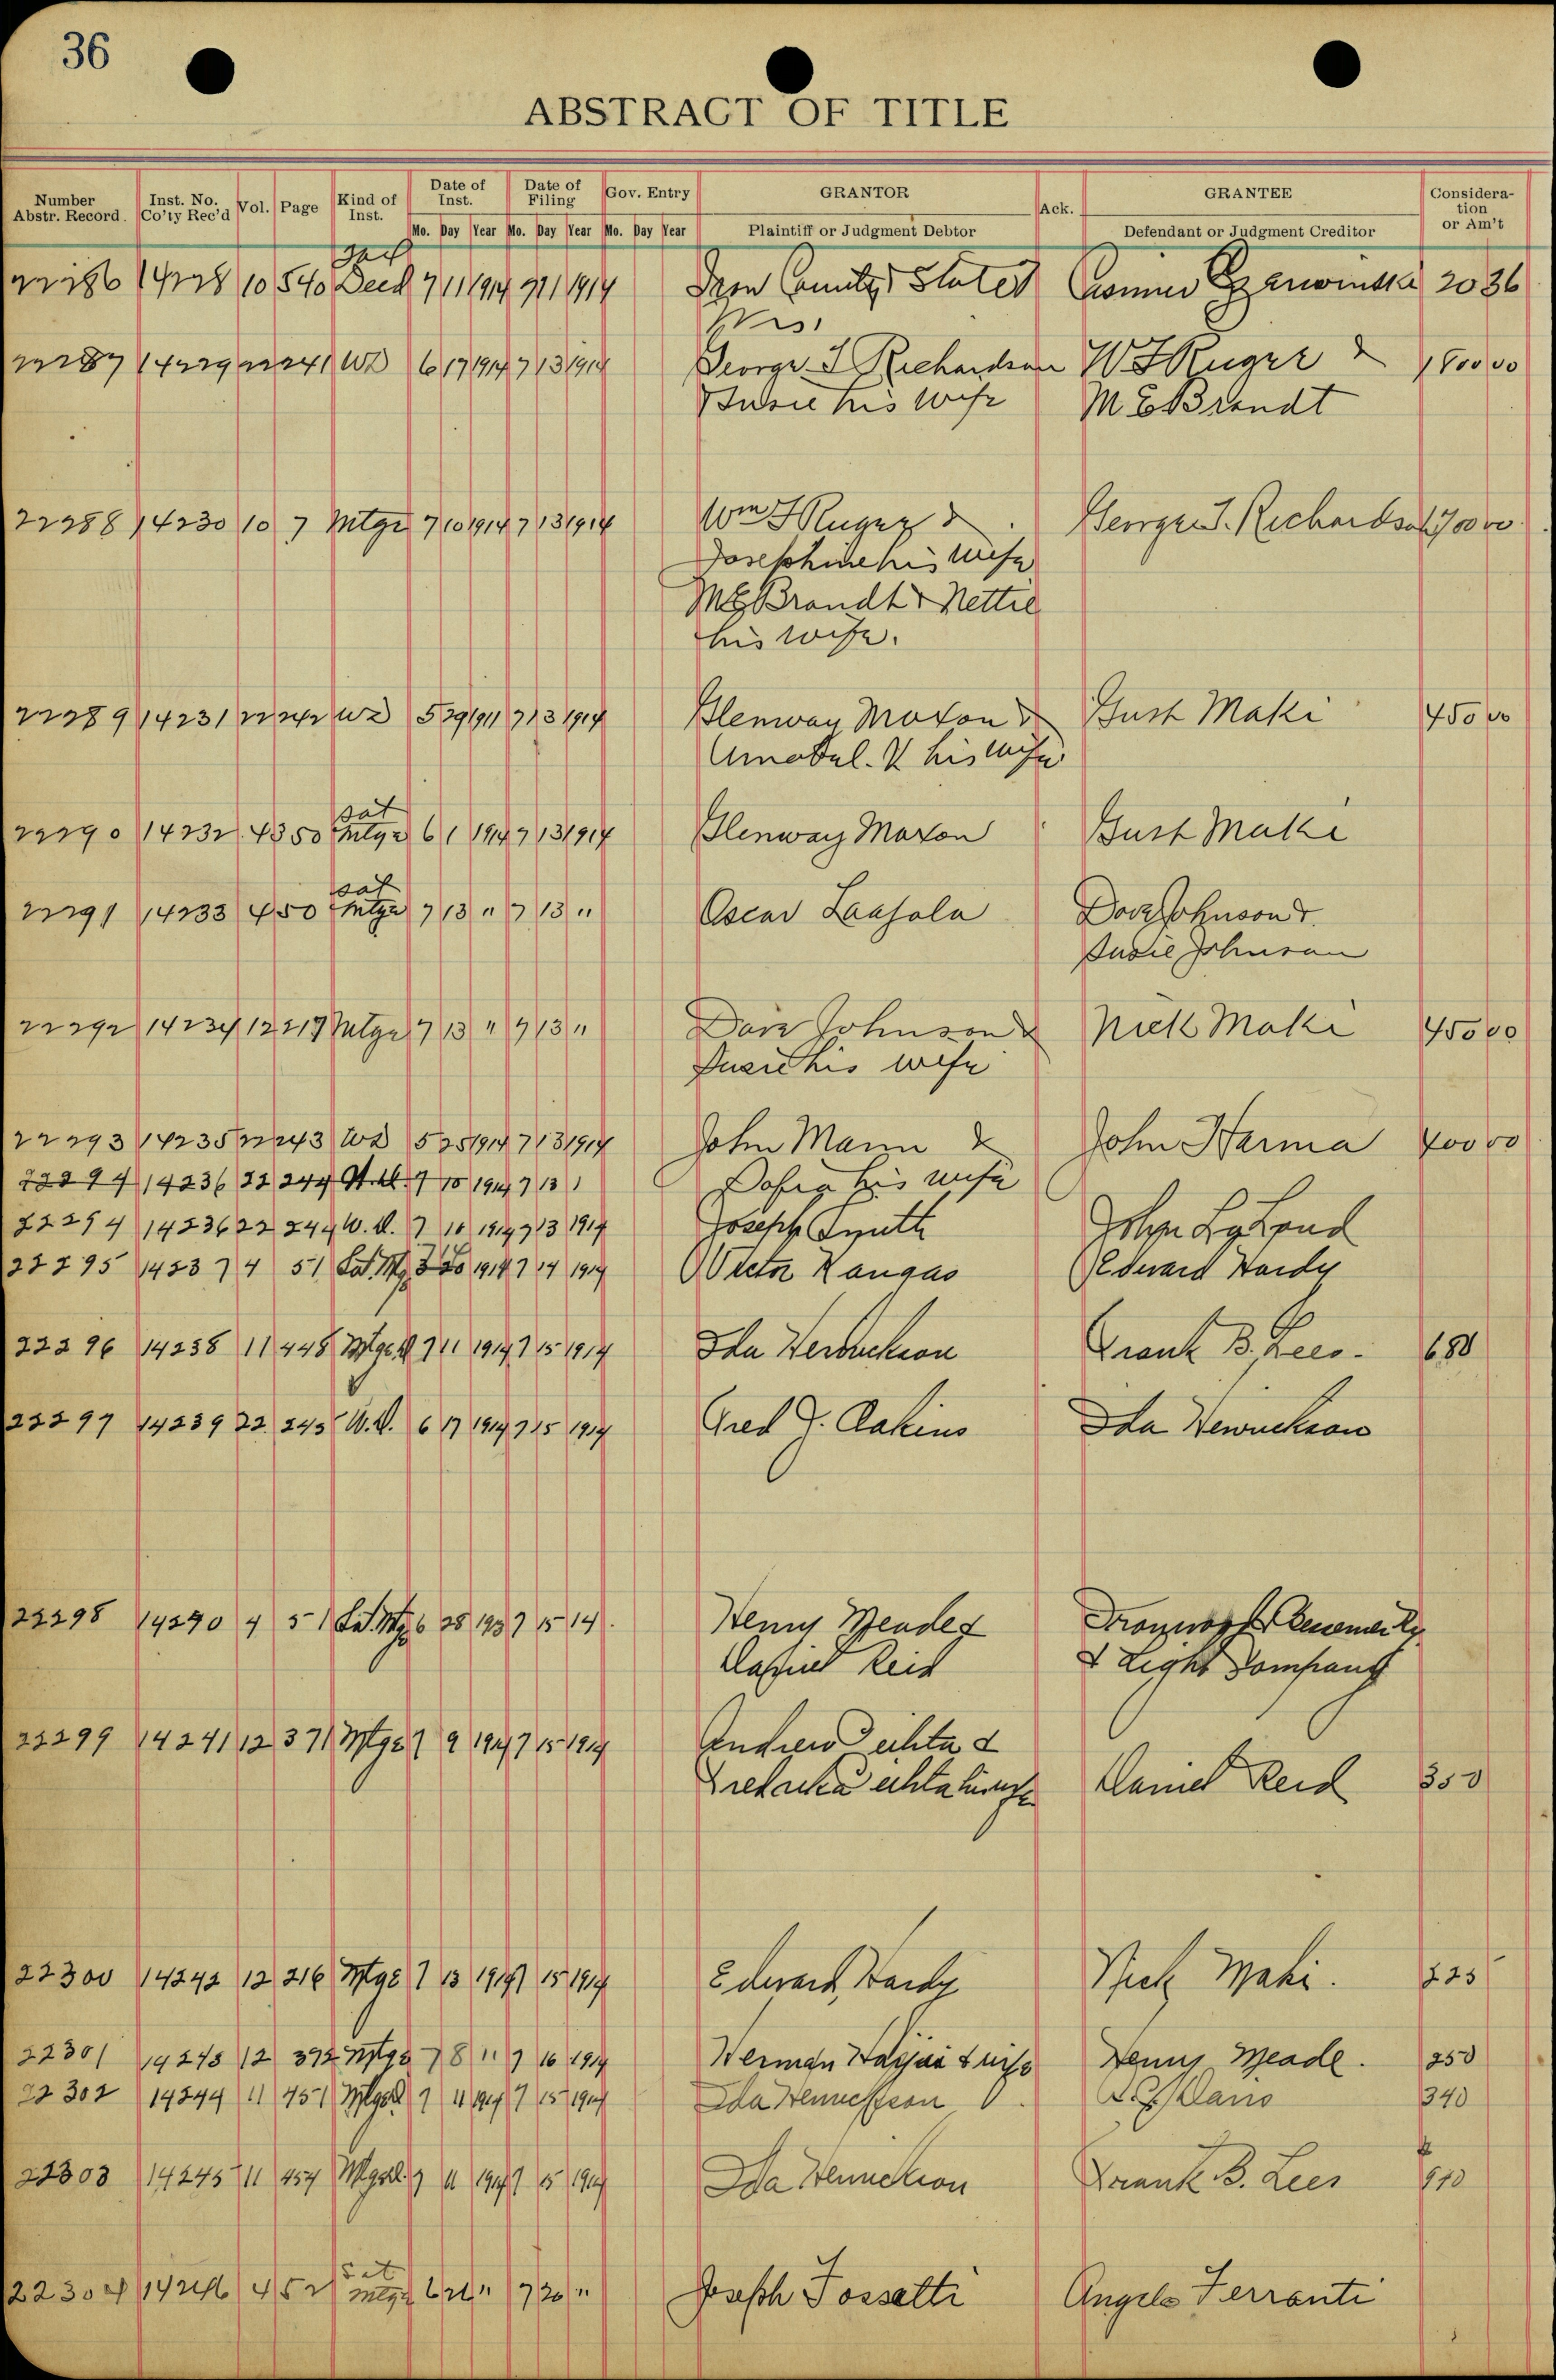 36
ABSTRACT OF TITLE
Number Abstr. Record. Inst. No. Co'ty Rec'd Vol. Page Kind of Inst. Date of Inst. Date of Filing Gov. Entry GRANTOR Ack. GRANTEE Consideration or Am't
Mo. Day Year Mo. Day Year Mo. Day Year Plaintiff or Judgment Debtor Defendant or Judgment Creditor
22286 14228 10 540 Deed 7 11 1914 7 11 1914 States 2036
22287 14229 22 241 WD 6 17 1914 7 13 1914 George J Richardson W J Kuger & 180000
Susie his wife M E Brandt
22288 14230 10 7 Mtge 7 10 1914 7 13 1914 Wm J Kuger & George J. Richardson 70000
Josephine his wife
M E Brandt & Nettie
his wife.
22289 14231 22 242 WD 5 29 1911 7 13 1914 Glenway Maxon & Gust Maki 45000
his wife
Sat
22290 14232 4 350 Mtge 6 1 1914 7 13 1914 Glenway Maxon Gust Maki
Sat
22291 14233 4 50 Mtge 7 13 " 7 13 " Oscar Dave Johnson &
Susie Johnson
22292 14234 12 217 Mtge 7 13 " 7 13 " Dave Johnson & Nick Maki 45000
Susie his wife
22293 14235 22 243 WD 5 25 1914 7 13 1914 John Mann & John Harma 40000
22294 14236 22 244 7 10 1914 7 13 his wife
22294 14236 22 244 W.D. 7 10 1914 7 13 1914 Joseph Smith John
22295 14237 4 51 Sat. Mtg 3 20 1914 7 14 1914 Victor Kangas Edward Hardy
22296 14238 11 448 7 11 1914 7 15 1914 Ida Frank B. Lees. 680
22297 14239 22 245 W.D. 6 17 1914 7 15 1914 Fred J. Dakins Ida
22298 14240 4 51 Sat. Mtg 6 28 7 15 14. Henry Meades
Daniel Reid & Light Company
22299 14241 12 371 Mtge 7 9 1914 7 15 1914 Andrew &
Daniel Reid 350
22300 14242 12 216 Mtge 7 13 1914 7 15 1914 Edward Hardy Nick Maki. 225
22301 14243 12 392 Mtge 7 8 " 7 16 1914 Herman & wife Henry Meade. 250
22302 14244 11 451 7 11 1914 7 15 1914 Ida 340
22303 14245 11 454 7 11 1914 7 15 1914 Ida Frank B. Lees 910
Sat
22304 14246 4 52 Mtge 6 21 " 7 20 " Joseph Fossatti Angelo Ferranti